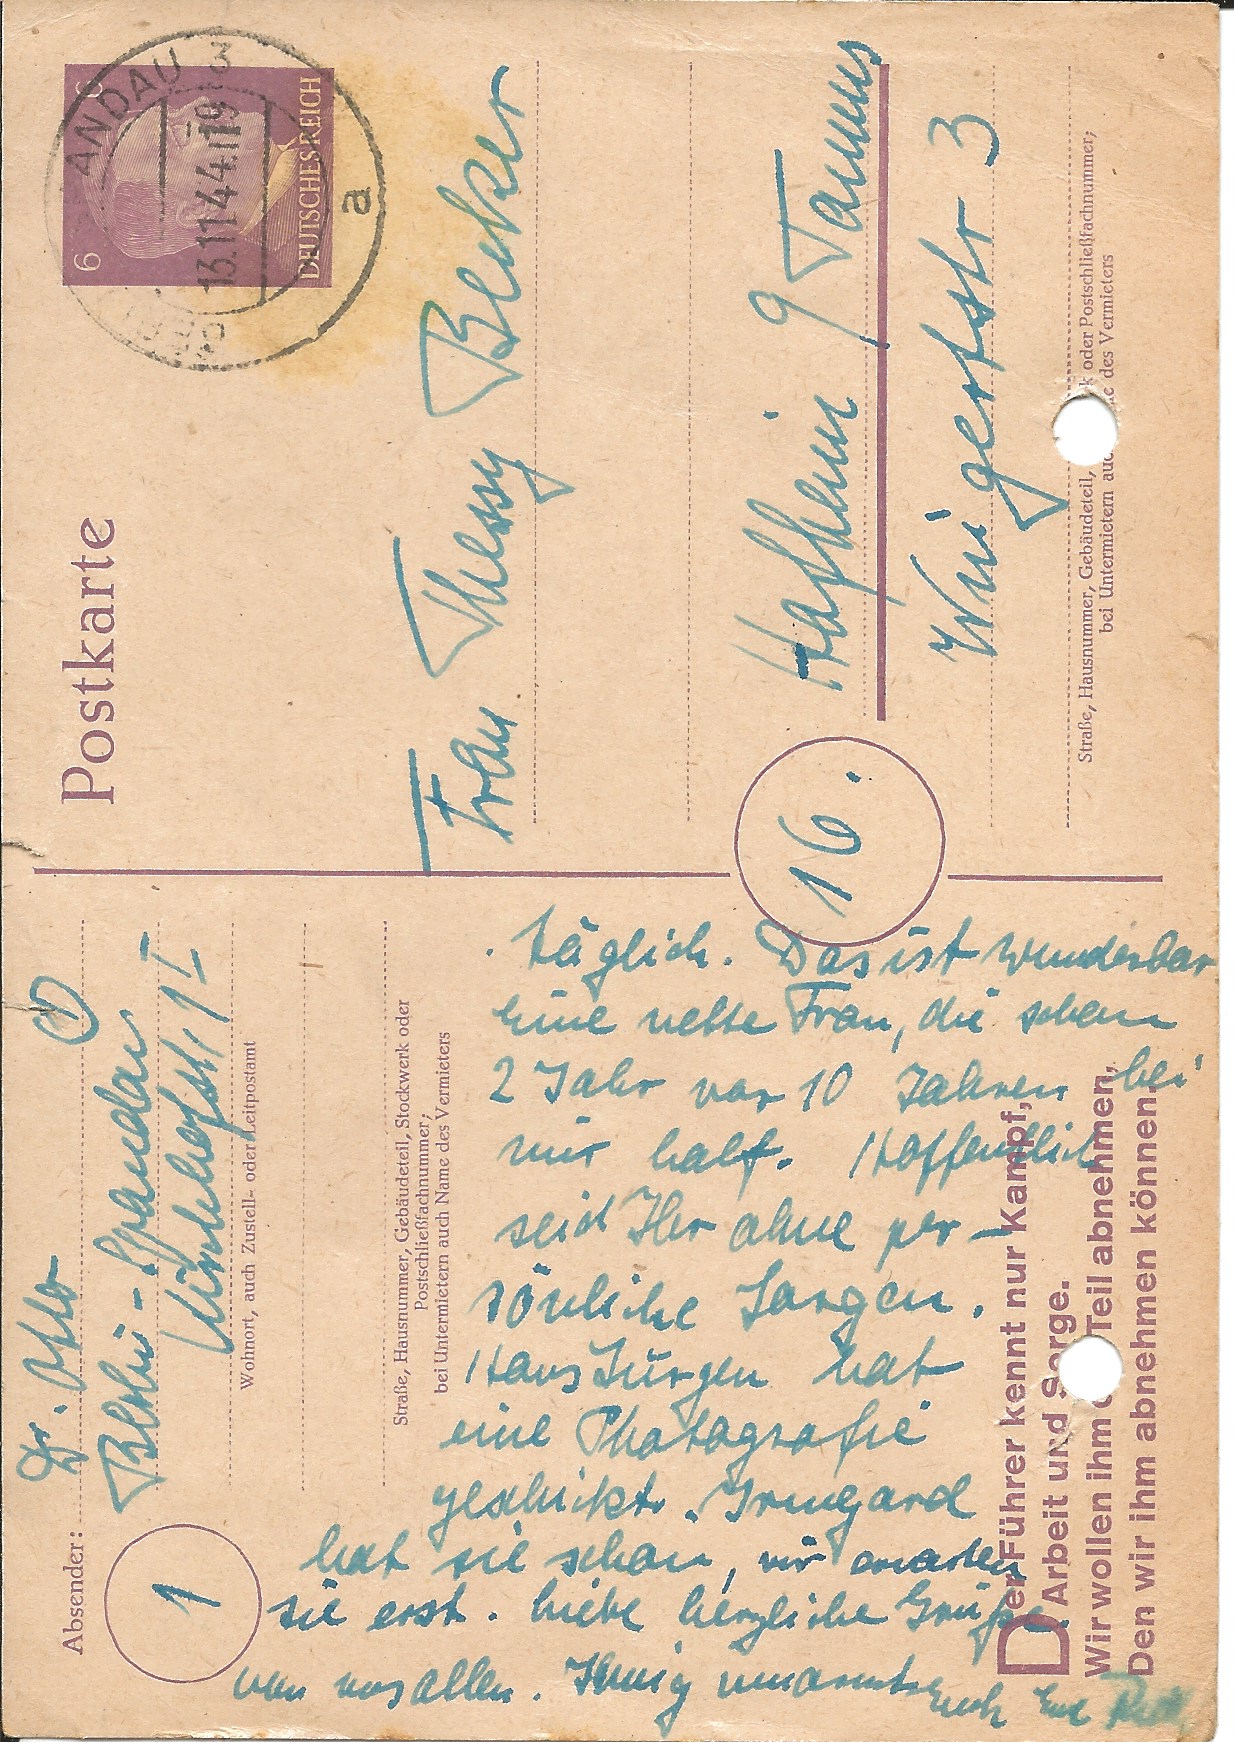 Postkarte
6 6
DEUTSCHES REICH
ANDAU 3
13.11.44.
a
Absender: Dr. Otto
Berlin-Spandau 1
Wohnort, auch Zustell- oder Leitpostamt
Straße, Hausnummer, Gebäudeteil, Stockwerk oder
Postschließfachnummer;
bei Untermietern auch Name des Vermieters
1
Frau Thessy Becker
16.
Hofheim / Taunus
Wingertstr 3
Straße, Hausnummer, Gebäudeteil, k oder Postschließfachnummer;
bei Untermietern auc e des Vermieters
Der Führer kennt nur Kampf,
Arbeit und Sorge.
Wir wollen ihm Teil abnehmen,
Den wir ihm abnehmen können.
täglich. Das ist wunderbar
Eine nette Frau, die schon
2 Jahr vor 10 Jahren bei
mir half. Hoffentlich
seid Ihr ohne per-
sönliche Sorgen.
Hans Jürgen hat
eine Photografie
geschickt. Irmgard
hat sie schon, wir
sie erst. Liebe herzliche Grüße
von uns allen. Innig umarmt
Euch Eure